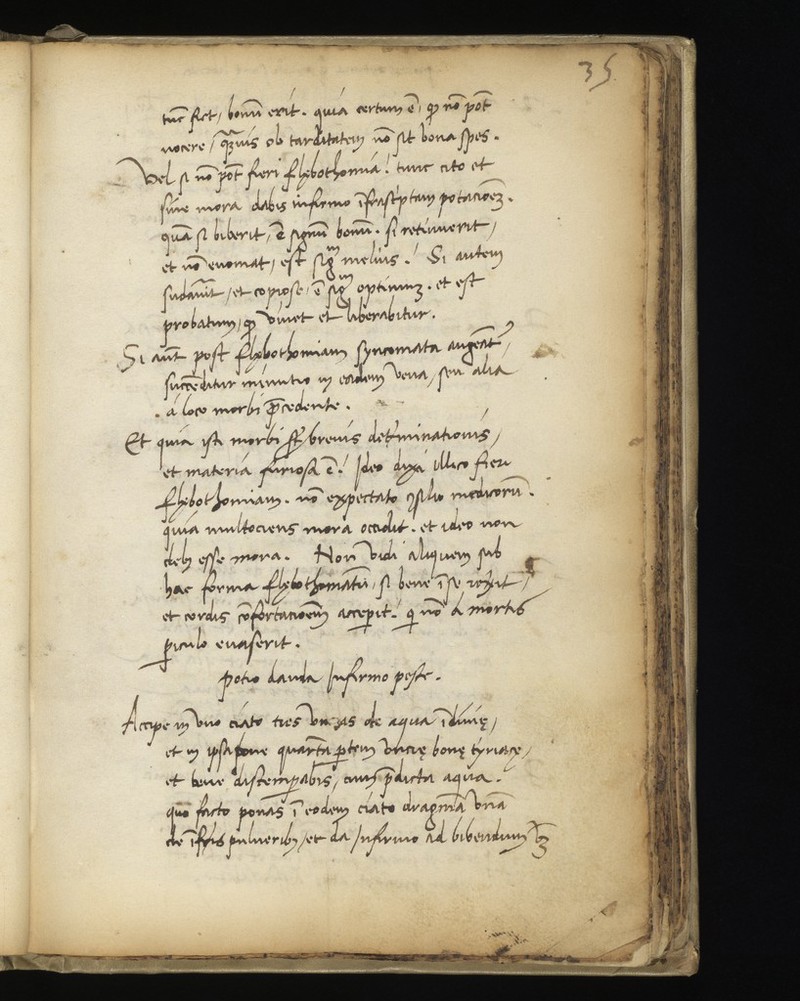 35
tūc fiet, bonū erit. quia certum ē, qꝫ nō pōt
nocere, quāuis ob tarditatem nō sit bona spes.
Vel si nō pōt fieri flhebothomia! tunc cito et
sine mora dabis infirmo īfrascriptam potacioēꝫ.
quā si biberit, ē signū bonū. si retinuerit,
et nō euomat, est sigᵐ melius. Si autem
sudauit, et copiose, ē sigᵐ optimuꝫ. et est
probatum, qꝫ viuet et liberabitur.
Si aūt post flhebothomiam syncomata augeāt,
succēditur minutio in eadem vena, seu alia
a loco morbi p̄cedente.
Et quia isti morbi st̄ breuis det̄minationis,
et materia furiosa ē! Ideo dixi illico fieri
flhebothomiam. nō expectato ꝯsilio medicorū.
quia multociens mora occidit. et ideo non
debꝫ esse mora. Non vidi aliquem sub
hac forma flhebothomatū, si bene ī se
et cordis cōfortacioēm acceperit! qī nō a mortis
ꝑiculo euaserit.
Potio danda Infirmo peste.
Accipe in vno ciato tres vnzas de aqua īdiuię,
et in ipsa pone quartā ꝑtem vncię bonę tyriacę,
et bene distemꝑabis, cum p̄dicta aqua.
quo facto ponas ī eodem ciato dragmā vnā
de īfrīs pulueribꝫ, et da Infirmo ad bibendum